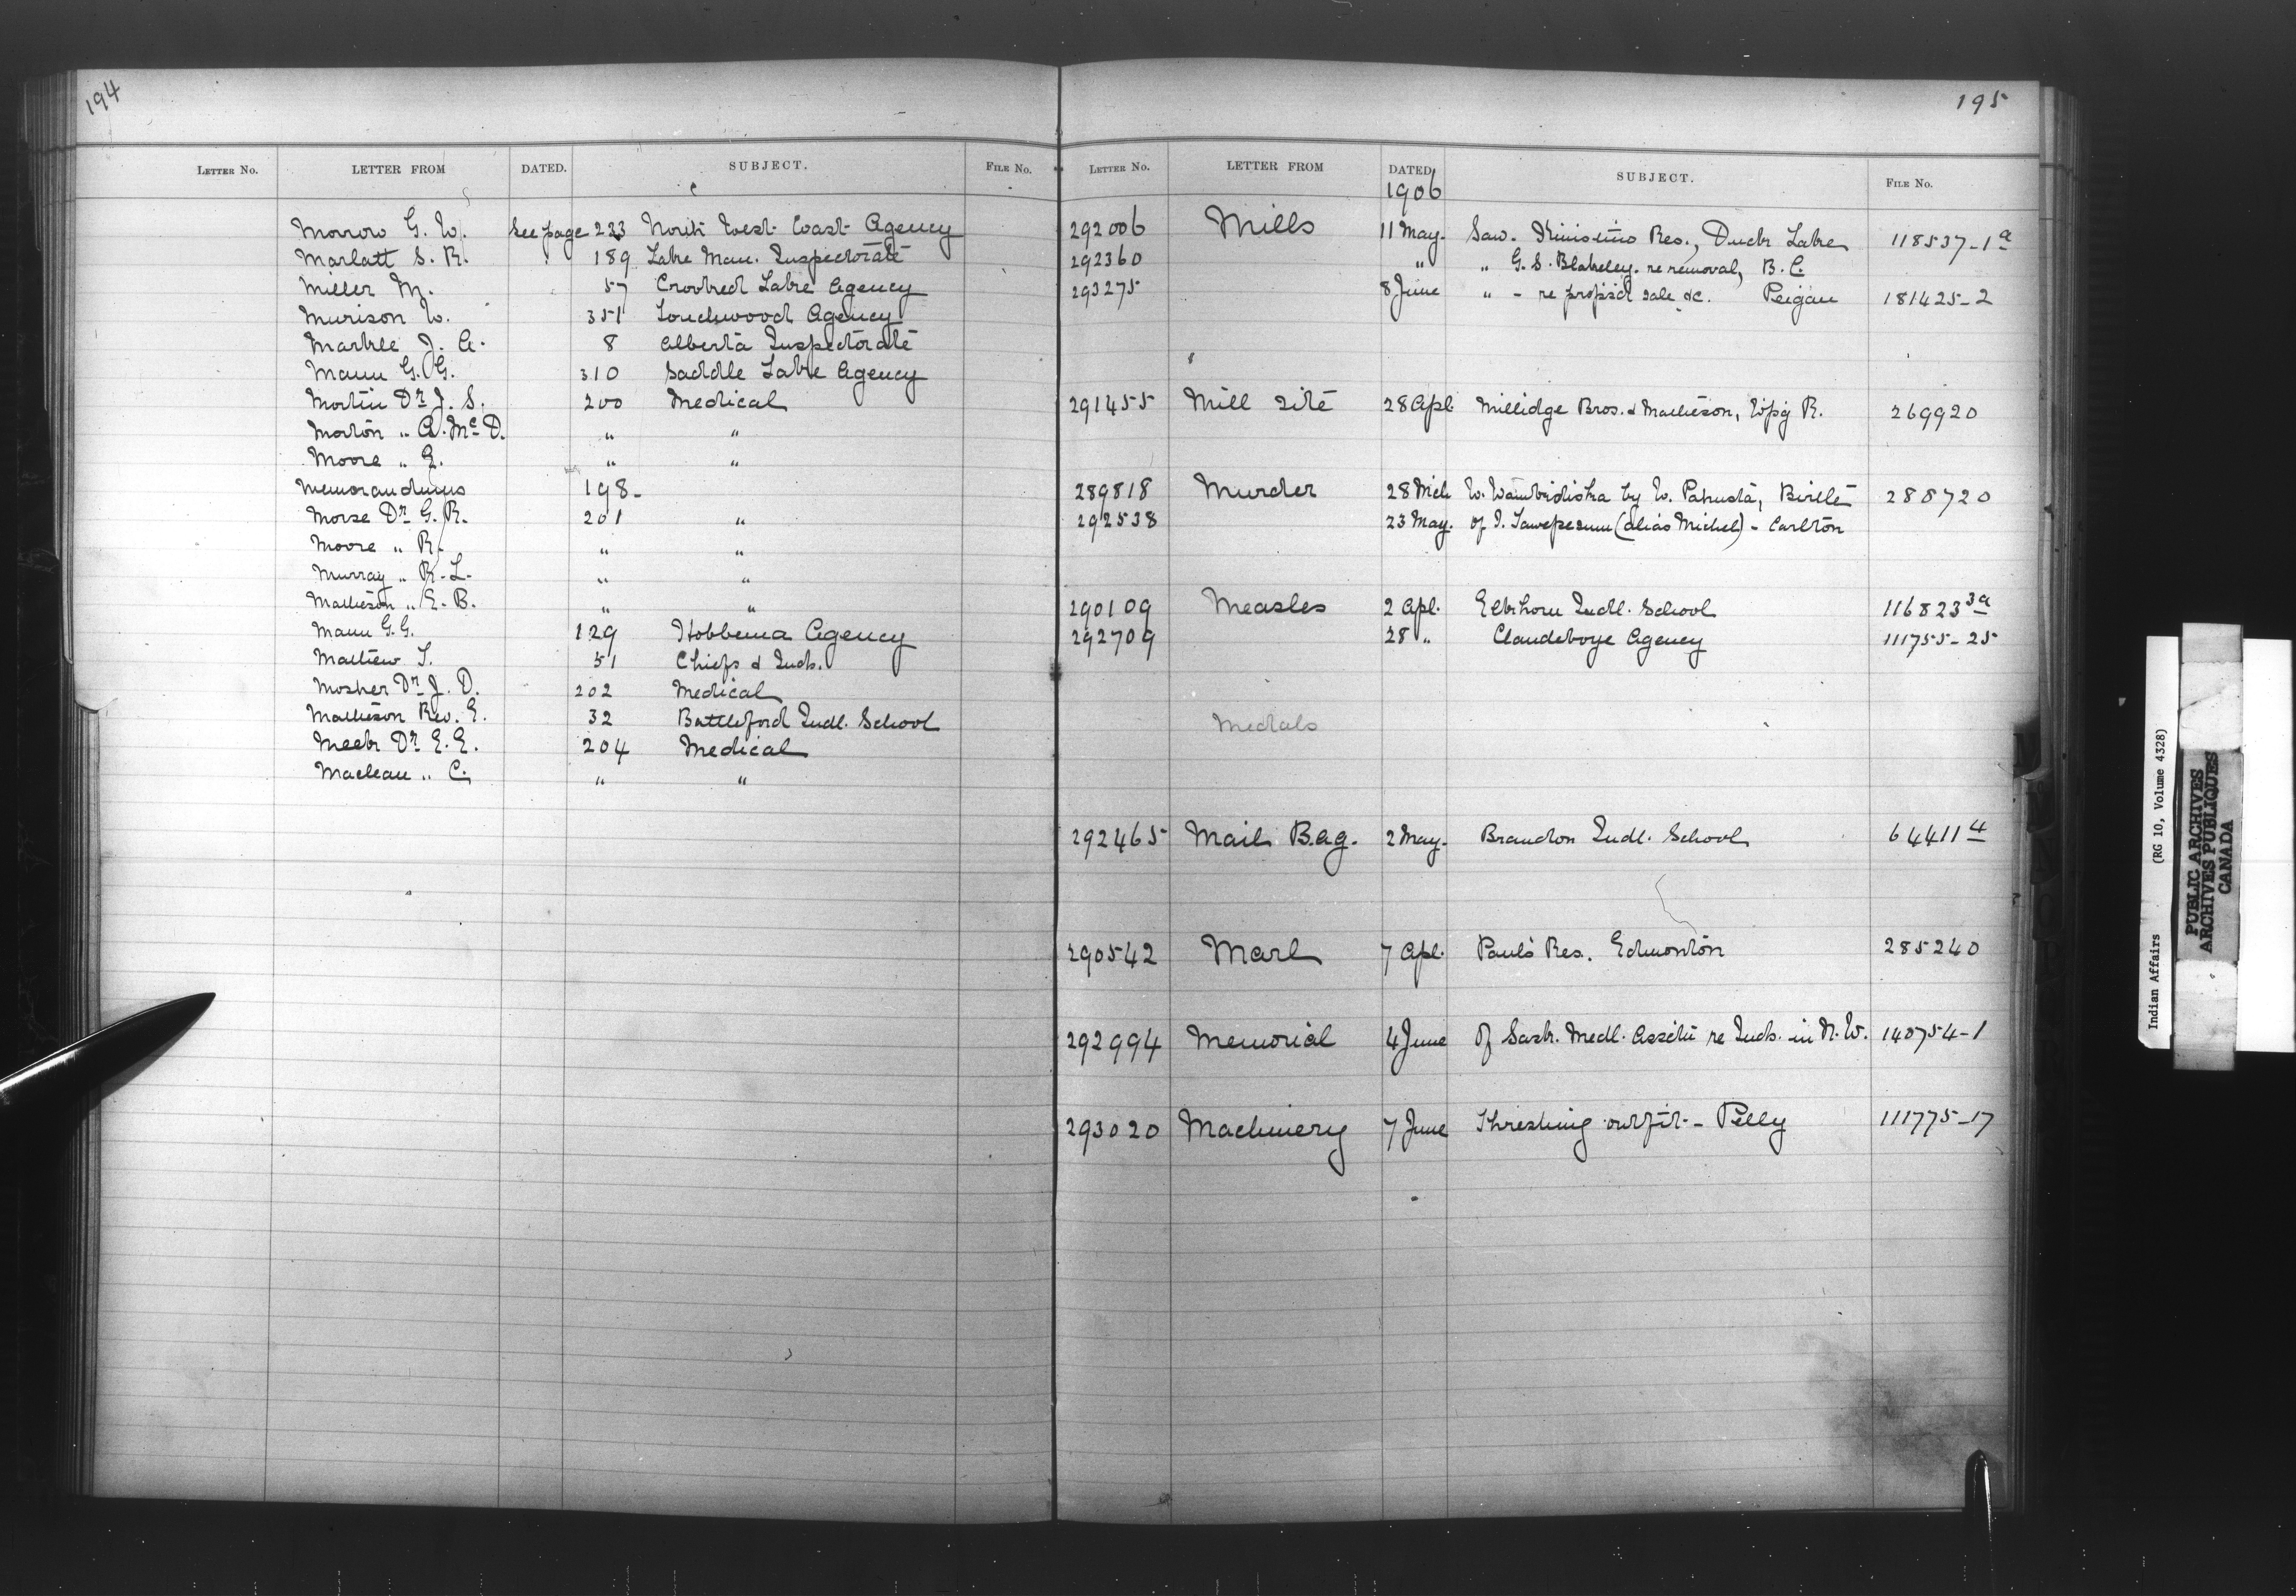 194
LETTER No. LETTER FROM DATED. SUBJECT. FILE No.
Morrow G. W. See page 223 North West Coast Agency
Marlatt S. R. 189 Lake Man. Inspectorate
Miller M. 57 Crooked Lake Agency
Murison W. 351 Touchwood Agency
Markle J. A. 8 Alberta Inspectorate
Mann G. G. 310 Saddle Lake Agency
Martin Dr J. S. 200 Medical
Morton " A. Mc D. " "
Moore " E. " "
Memorandums 198-
Morse Dr G. R. 201 "
Moore " R. " "
Murray " R. L. " "
Matheson " E. B. " "
Mann G. G. 129 Hobbema Agency
Mathew T. 51 Chiefs & Inds.
Mosher Dr J. D. 202 Medical
Matheson Rev. E. 32 Battleford Indl. School
Meek Dr E. E. 204 Medical
Maclean " C. " "
195
LETTER No. LETTER FROM DATED SUBJECT. FILE No.
1906
292006 Mills 11 May. Saw. Kinistino Res., Duck Lake 118537-1a
292360 " " G. S. Blakeley. re removal, B. C.
293275 8 June " - re propsd sale &c. Peigan 181425-2
291455 Mill site 28 Apl. Millidge Bros. & Matheson, Wpg R. 269920
289818 Murder 28 Mch W. by W. Birtle 280720
292538 23 May. of (alias Michel) - Carlton
290109 Measles 2 Apl. Elkhorn Indl. School 116823 3a
292709 28 " Clandeboye Agency 111755-25
Medals
292465 Mail Bag. 2 May. Brandon Indl. School 64411 4
290542 Marl 7 Apl. Paul's Res. Edmonton 285240
292994 Memorial 4 June Of Sask. Medl. Assctn re Inds. in N. W. 140754-1
293020 Machinery 7 June Threshing outfit - Pelly 111775-17
Indian Affairs (RG 10, Volume 4328)
PUBLIC ARCHIVES
ARCHIVES PUBLIQUES
CANADA